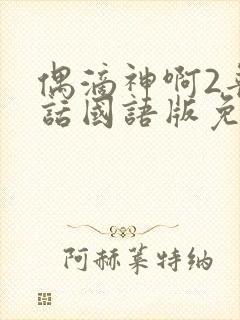 偶滴神啊2普
話國語版免
阿赫莱特纳